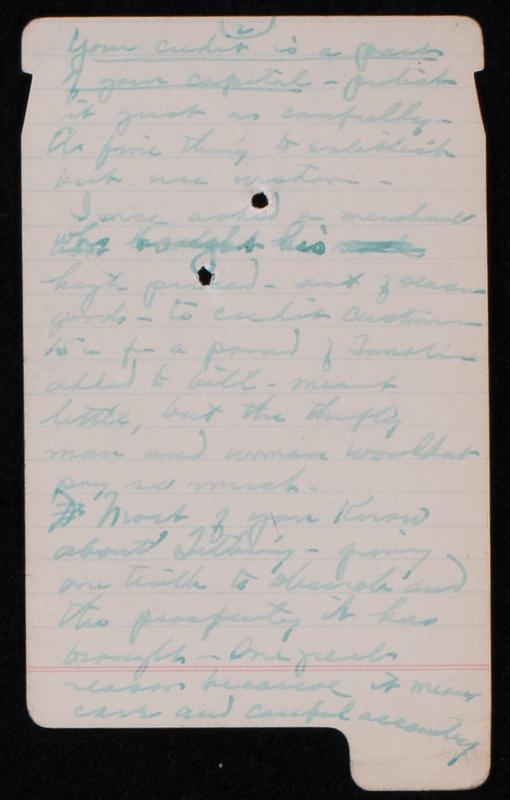 (2)
Your credit is a part
of your capital - protect
it just as carefully -
A fine thing to establish
but use wisdom -
I once asked a merchant
who bought his
high priced - out of season
goods - to credit customers
15¢ for a pound of Tomatoes
added to bill - meant
little, but the thrifty
man and woman wouldn't
pay so much.
Most of you know
about Tithing - giving
one tenth to church and
the prosperity it has
brought - One great
reason because it means
care and careful accounting